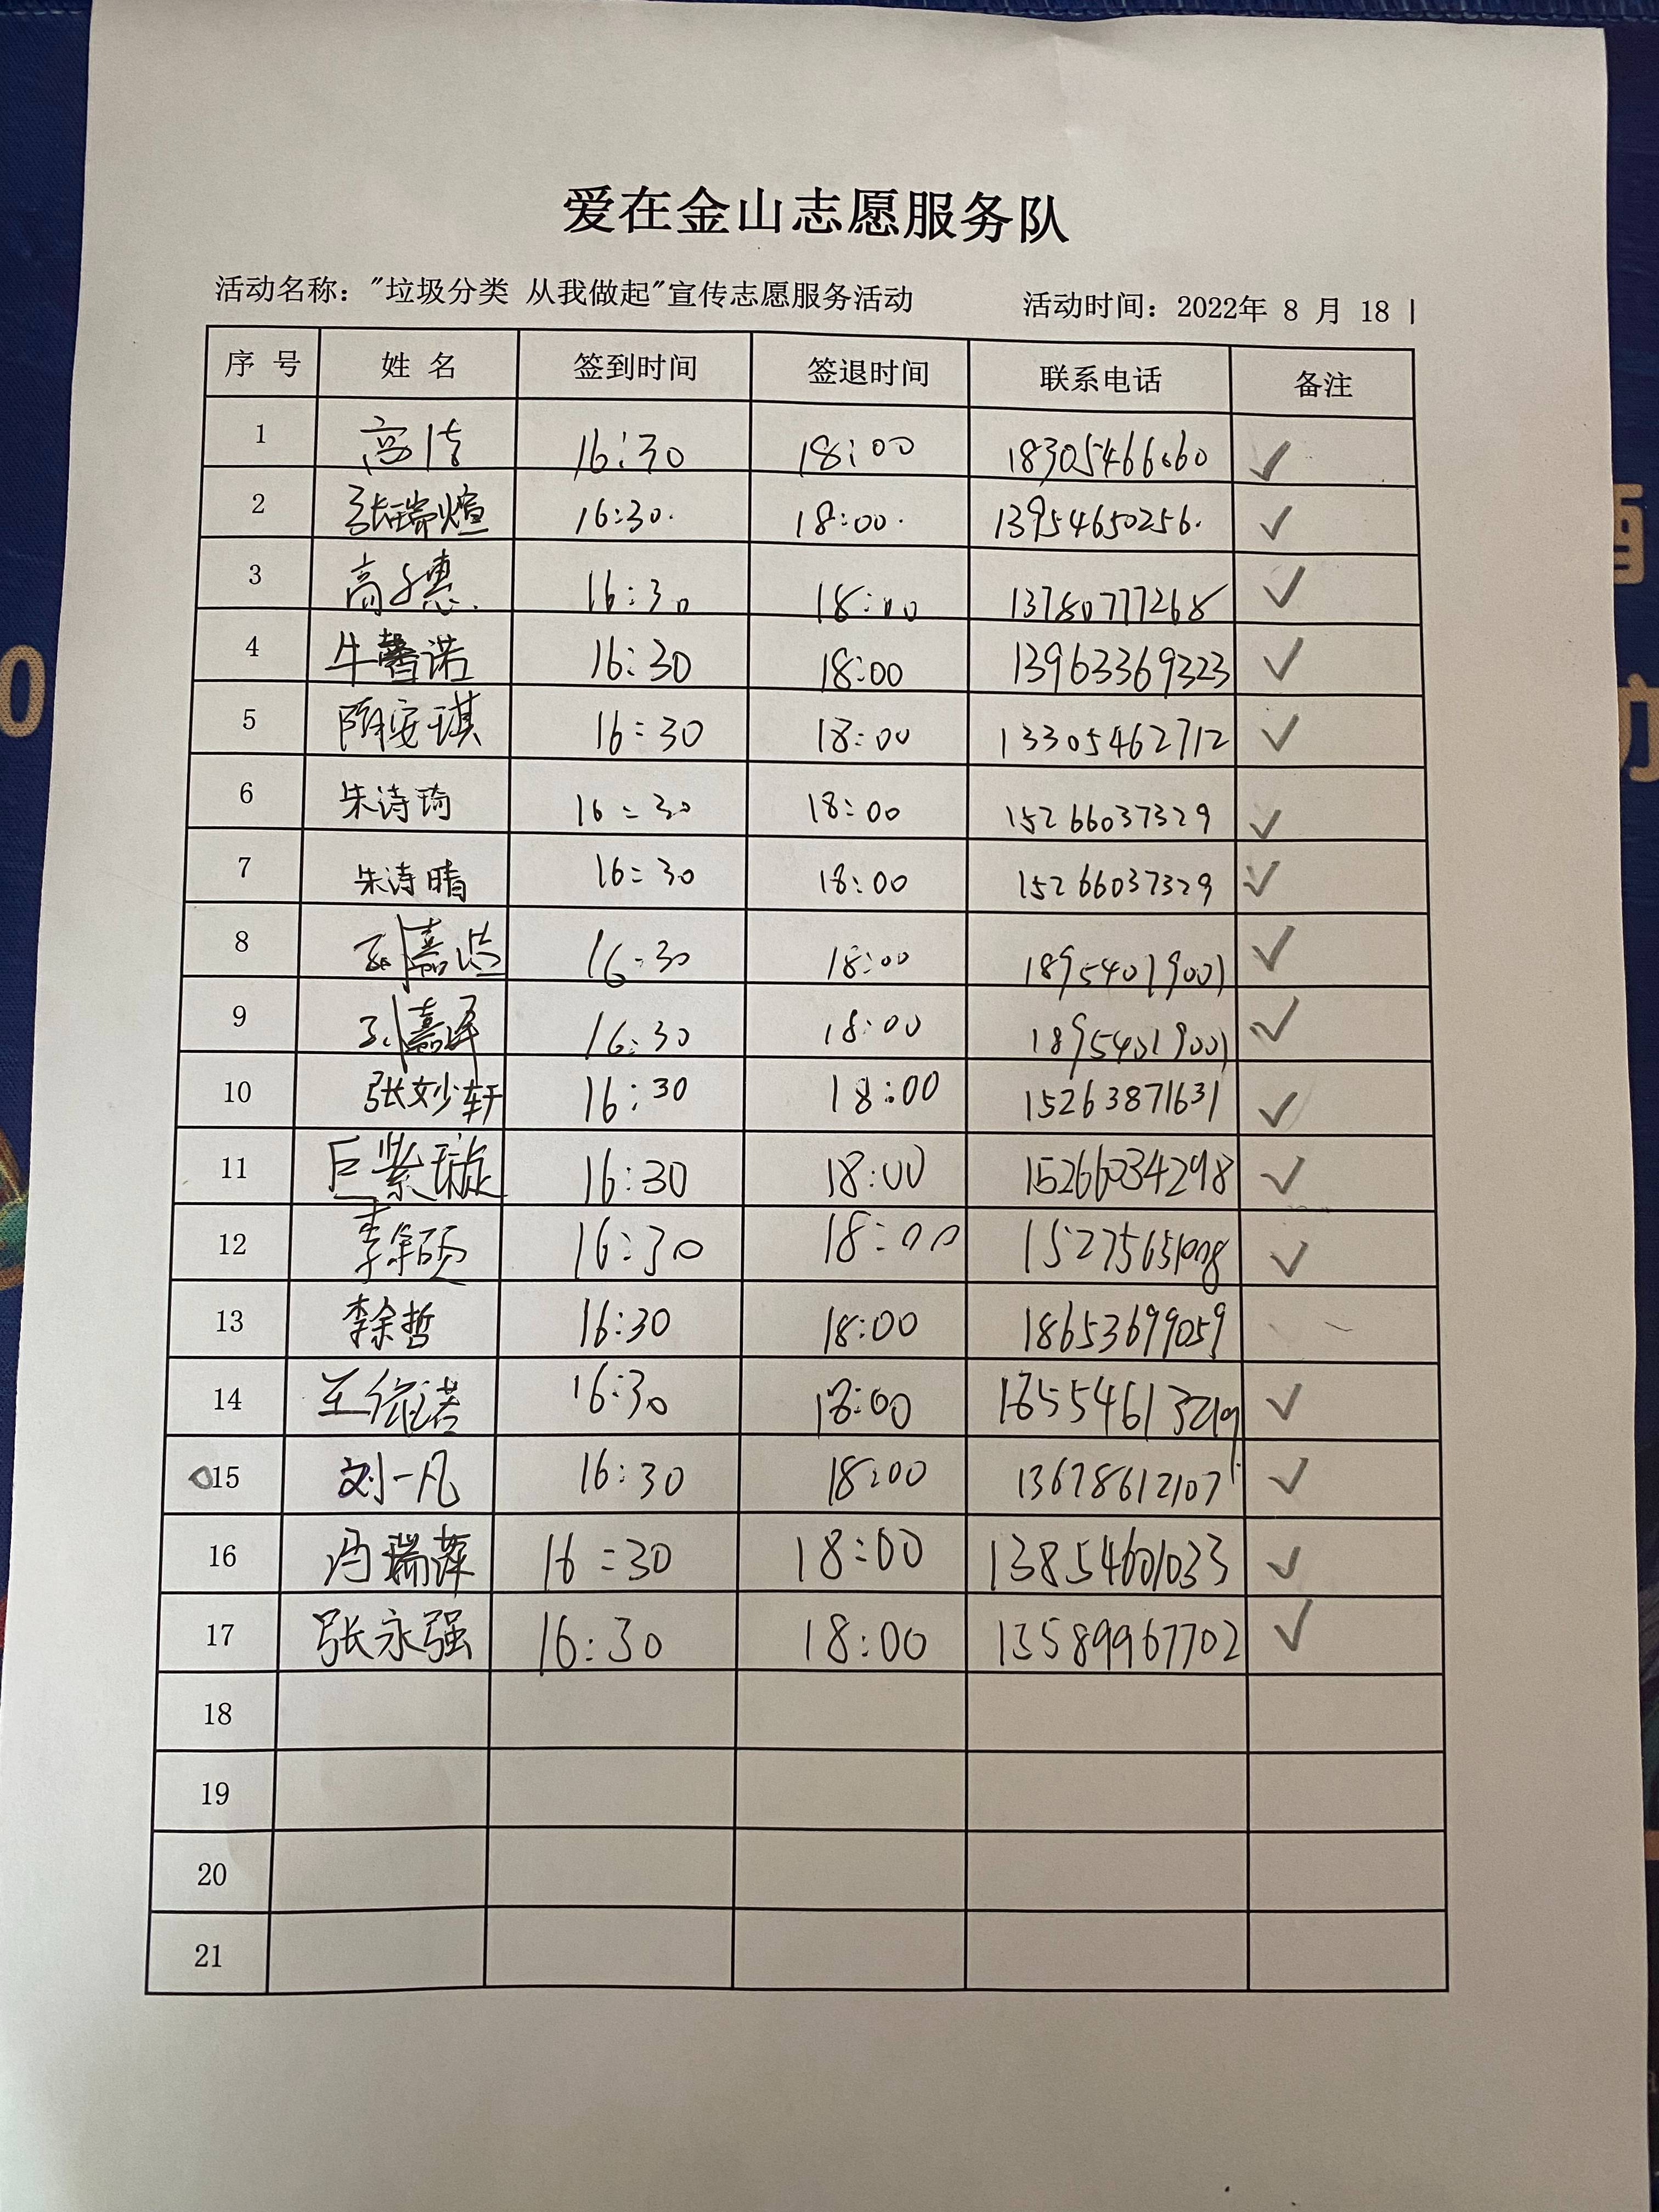 爱在金山志愿服务队
活动名称："垃圾分类 从我做起"宣传志愿服务活动 活动时间：2022年 8 月 18
序 号 姓 名 签到时间 签退时间 联系电话 备注
1 高洁 16:30 18:00 18305466060 ✓
2 张瑞煊 16:30. 18:00. 13954650256. ✓
3 高子惠. 16:30 18:00 13780777268 ✓
4 牛馨诺 16:30 18:00 13963369323 ✓
5 隋安琪 16:30 18:00 13305462712 ✓
6 朱诗琦 16:30 18:00 15266037329 ✓
7 朱诗晴 16:30 18:00 15266037329 ✓
8 16:30 18:00 18954019001 ✓
9 16:30 18:00 18954019001 ✓
10 张妙轩 16:30 18:00 15263871631 ✓
11 巨紫璇 16:30 18:00 15266034298 ✓
12 李徐硕 16:30 18:00 ✓
13 李徐哲 16:30 18:00 18653699059
14 王依诺 16:30 18:00 ✓
15 刘一凡 16:30 18:00 13678612107 ✓
16 冯瑞萍 16:30 18:00 13854601033 ✓
17 张永强 16:30 18:00 13589967702 ✓
18
19
20
21